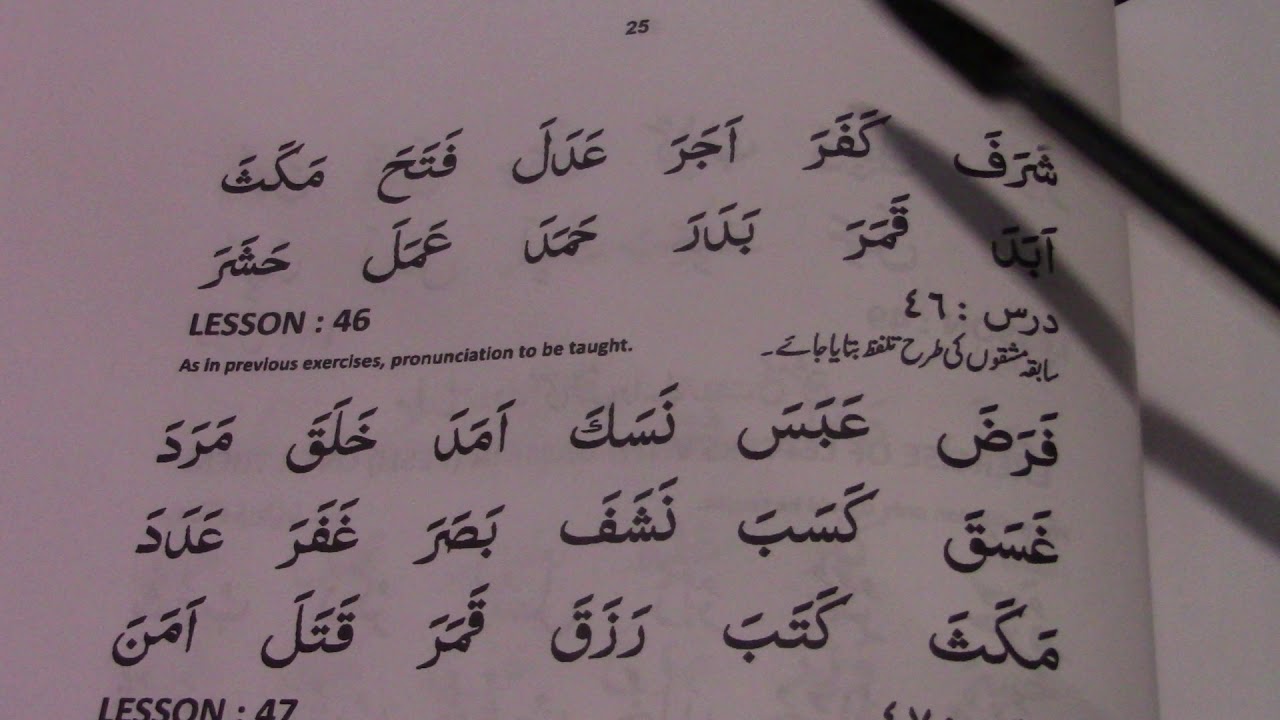 25
شَرَفَ كَفَرَ اَجَرَ عَدَلَ فَتَحَ مَكَثَ
اَبَدَ قَمَرَ بَدَرَ حَمَدَ عَمَلَ حَشَرَ
LESSON : 46 درس : ٤٦
As in previous exercises, pronunciation to be taught. سابقہ مشقوں کی طرح تلفظ بتایا جائے۔
فَرَضَ عَبَسَ نَسَكَ اَمَدَ خَلَقَ مَرَدَ
غَسَقَ كَسَبَ نَشَفَ بَصَرَ غَفَرَ عَدَدَ
مَكَثَ كَتَبَ رَزَقَ قَمَرَ قَتَلَ اَمَنَ
LESSON : 47 : ٤٧